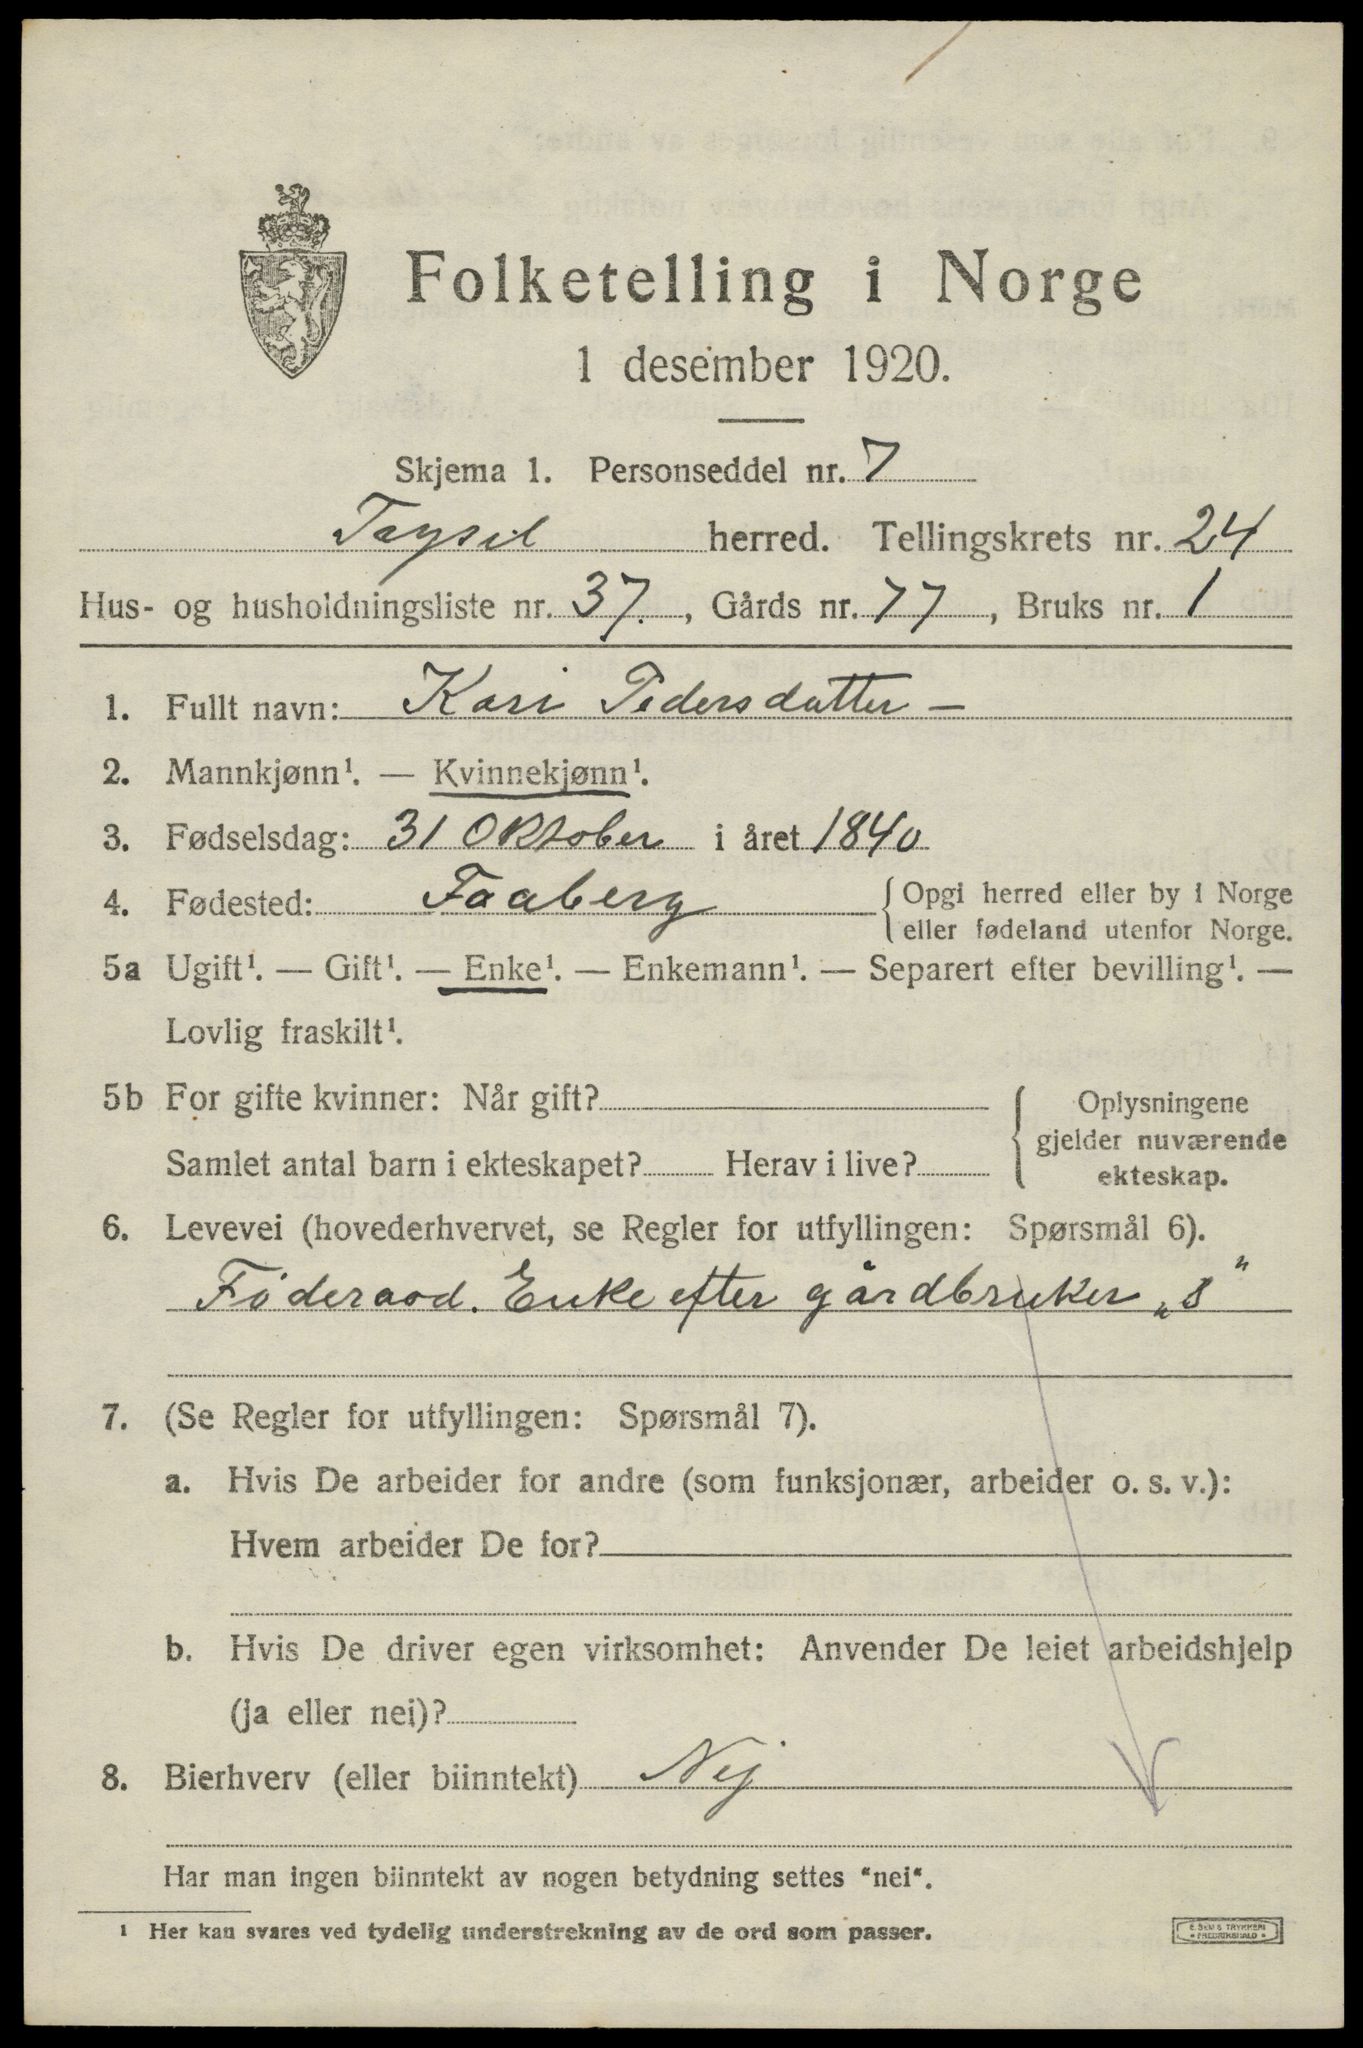 Folketelling i Norge
1 desember 1920.
Skjema 1. Personseddel nr. 7
Trysil herred. Tellingskrets nr. 24
Hus- og husholdningsliste nr. 37., Gårds nr. 77, Bruks nr. 1
1. Fullt navn: Kari Pedersdatter —
2. Mannkjønn¹. — Kvinnekjønn¹.
3. Fødselsdag: 31 Oktober i året 1840
4. Fødested: Faaberg { Opgi herred eller by i Norge
eller fødeland utenfor Norge.
5a Ugift¹. — Gift¹. — Enke¹. — Enkemann¹. — Separert efter bevilling¹. —
Lovlig fraskilt¹.
5b For gifte kvinner: Når gift?
Samlet antal barn i ekteskapet? Herav i live?
Oplysningene
gjelder nuværende
ekteskap.
6. Levevei (hovederhvervet, se Regler for utfyllingen: Spørsmål 6).
Føderaad. Enke efter gårdbruker „S"
7. (Se Regler for utfyllingen: Spørsmål 7).
a. Hvis De arbeider for andre (som funksjonær, arbeider o. s. v.):
Hvem arbeider De for?
b. Hvis De driver egen virksomhet: Anvender De leiet arbeidshjelp
(ja eller nei)?
8. Bierhverv (eller biinntekt) Nej
Har man ingen biinntekt av nogen betydning settes "nei".
¹ Her kan svares ved tydelig understrekning av de ord som passer.
E. SEMS TRYKKERI
• FREDRIKSHALD •